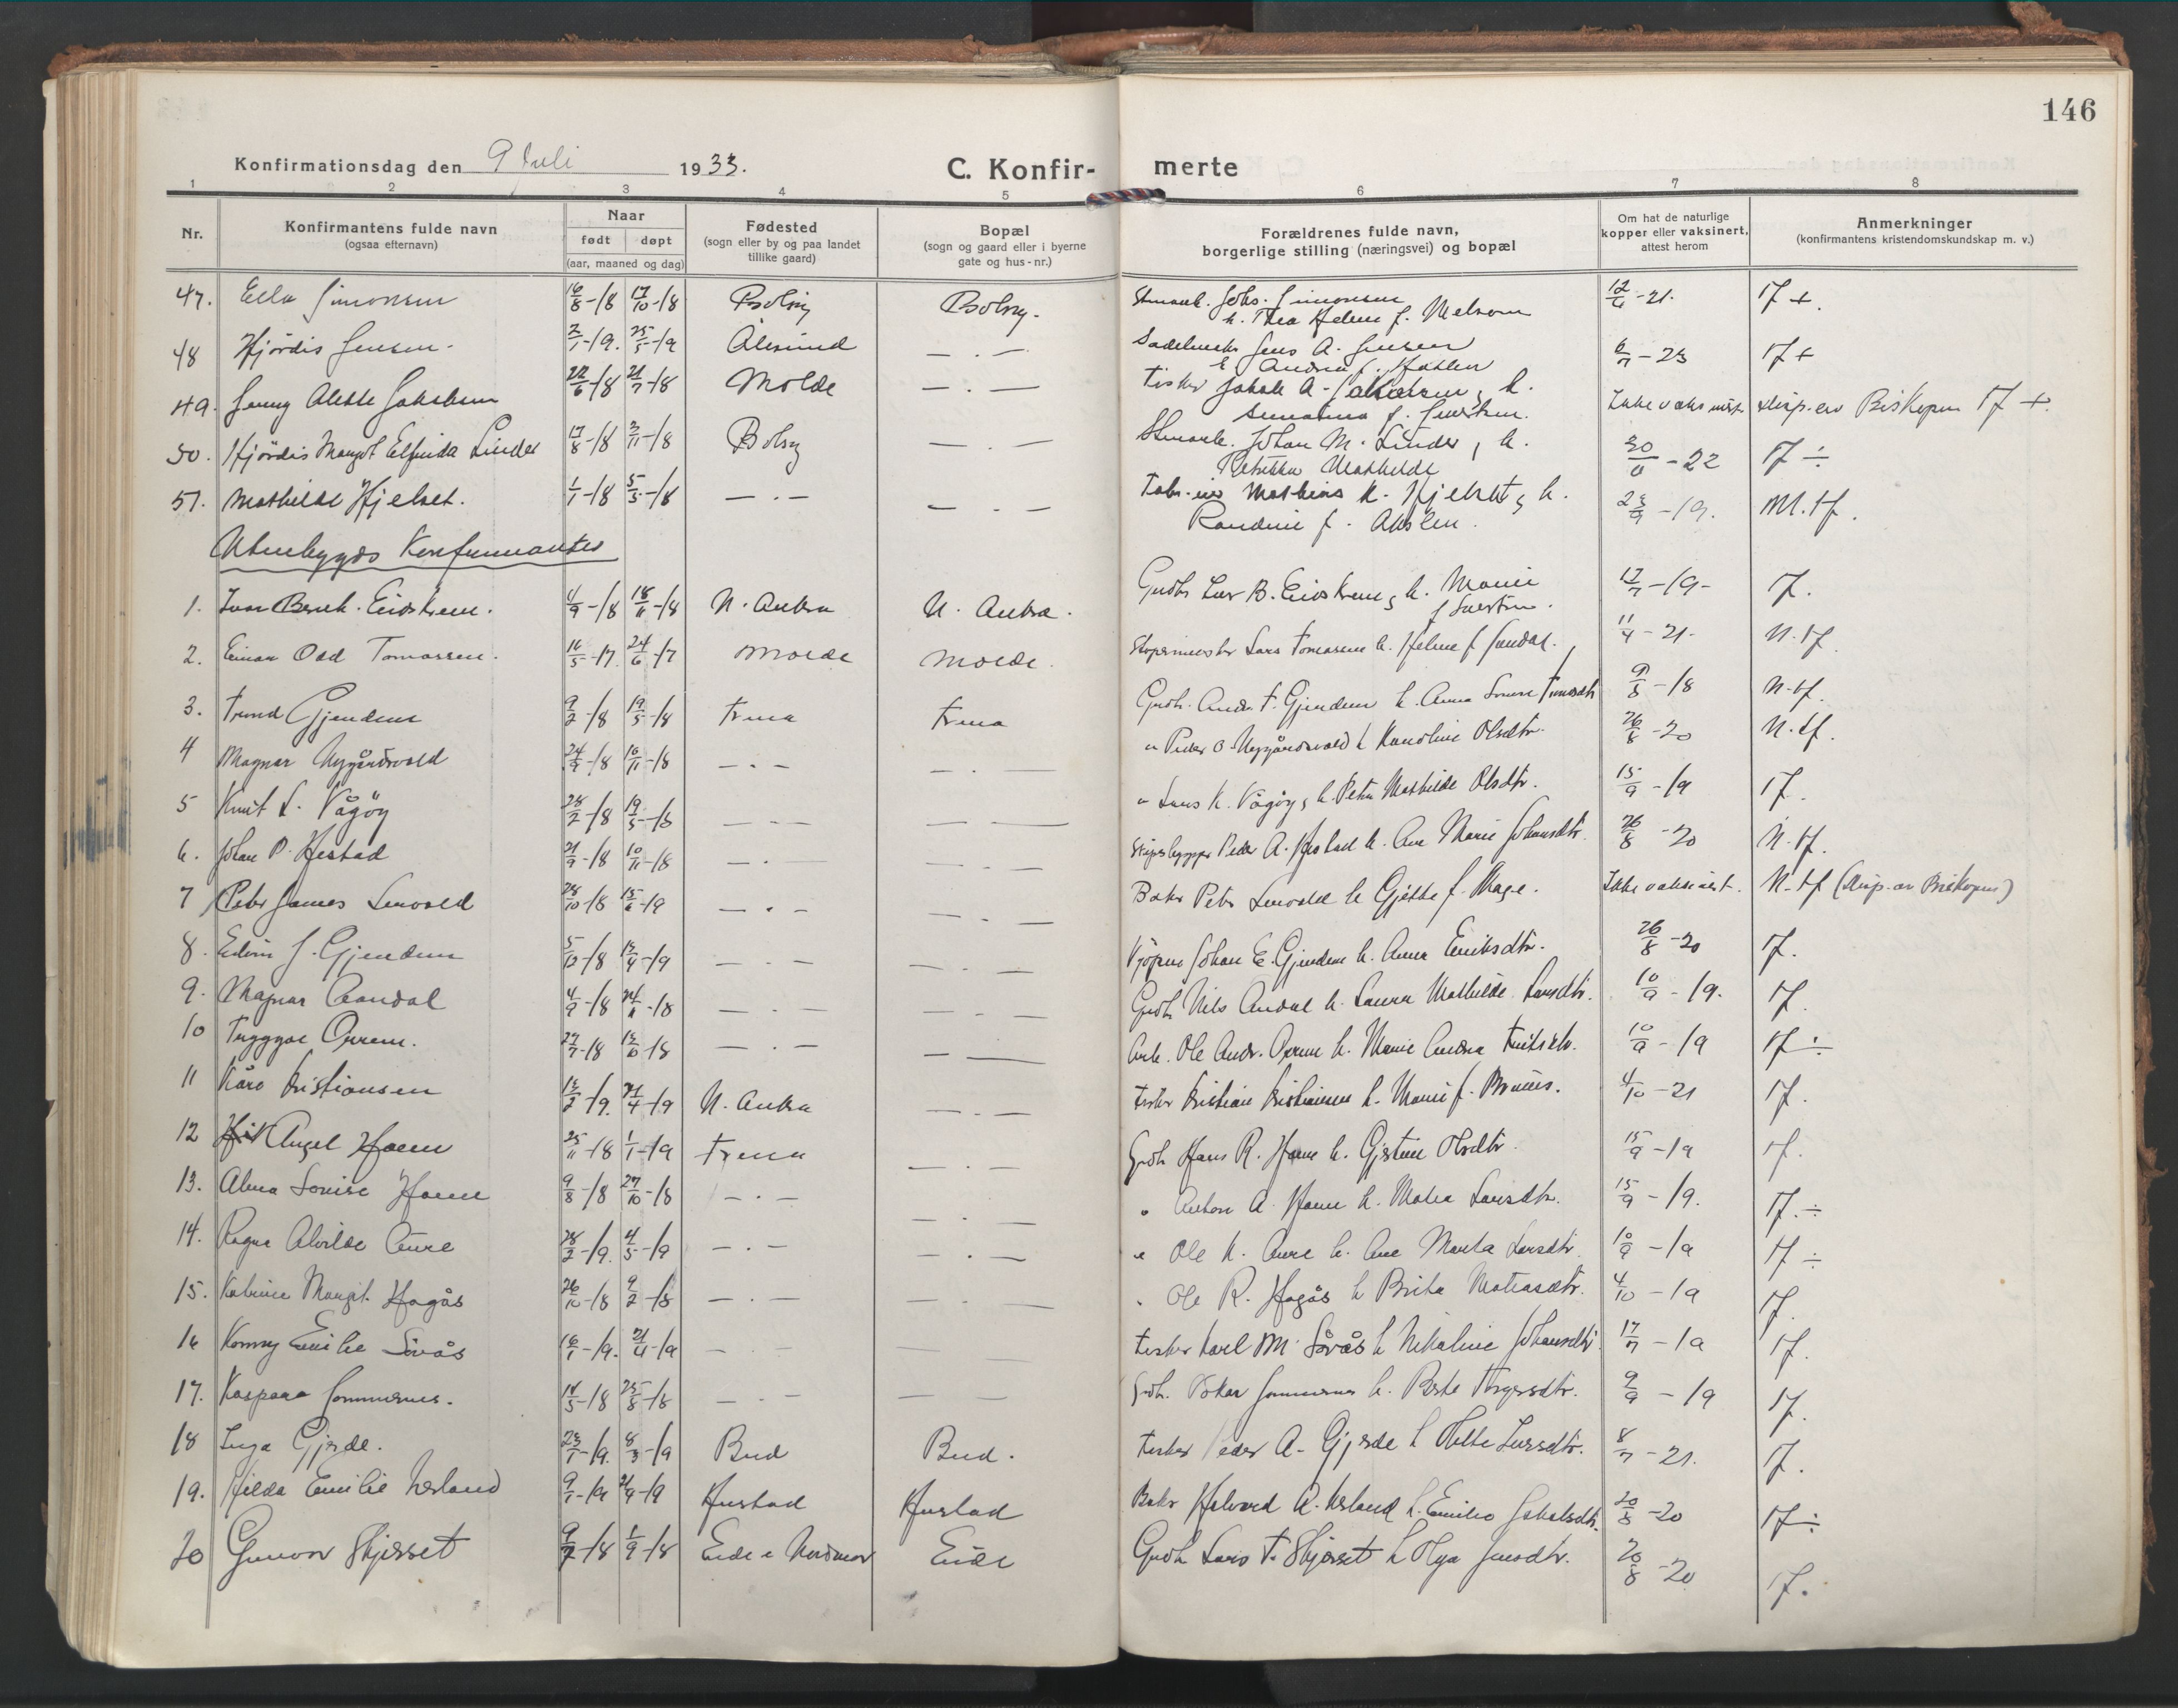 146
Konfirmationsdag den 9 Juli 1933.
C. Konfir-merte
1 2 3 4 5 6 7 8
Nr.
Konfirmantens fulde navn
(ogsaa efternavn)
Naar
født døpt
(aar, maaned og dag)
Fødested
(sogn eller by og paa landet
tillike gaard)
Bopæl
(sogn og gaard eller i byerne
gate og hus-nr.)
Forældrenes fulde navn,
borgerlige stilling (næringsvei) og bopæl
Om hat de naturlige
kopper eller vaksinert,
attest herom
Anmerkninger
(konfirmantens kristendomskundskap m. v.)
47. Ella Simonsen 16/8-18 17/10-18 Bolsøy Bolsøy. Johs. Simonsen 12/6-21. tf +.
h. Thea Helene f. Nelson
48 Hjördis Jensen. 2/1-19. 25/5-19 Ålesund — . — Jens A. Jensen 6/7-23 tf +
49. Jenny Alette Jakobsen 22/6-18 21/7-18 Molde — . — Fisker Jakob A. Jakobsen, h. Ikke vaksinert. disp. av Biskopen tf +.
50. Hjördis Margot Elfrida Linder 17/8-18 3/11-18 Bolsøy — . — Johan M. Linder, h. 30/6-22 tf ÷
Mathilde
51. Mathilde Hjelset. 1/1-18 5/5-18 — . — — . — Mathias K. Hjelset, h. 23/9-19. M.tf.
Randine f. Akslen.
Utenbygds Konfirmanter
1. Ivar Bernh. Eidskrem. 4/9-18 18/11-18 N. Aukra N. Aukra. Grdbr. Lars B. Eidskrem, h. Marie 17/7-19- tf.
2. Einar Odd Tomassen. 16/5-17. 24/6-17 Molde Molde. Lars Tomassen h. Helene f. Sandal. 11/4-21. N.tf.
3. Trond Gjendem 9/2-18 19/5-18 Fræna Fræna Grdbr. Andr. T. Gjendem h. Anna 9/8-18 N.tf.
4 Magnar Nygårdsvold 24/9-18 10/11-18 — . — — . — " Peder O. Nygårdsvold h Karoline Olsdtr. 26/8-20 N.tf.
5 Knut L. Vågöy 28/2-18 19/5-18 — . — — . — " Lars K. Vågöy, h. Petra Mathilde Olsdtr. 15/9-19 tf.
6. Johan P. Hestad 21/9-18 10/11-18 — . — — . — Skipsbygger Peder A. Hestad h. Ane Marie Johansdtr. 26/8-20 N.tf.
7 Peter James Linvold 28/10-18 15/6-19 — . — — . — Baker Peter h Gjette f. Ikke vaksinert. N.tf (disp. av Biskopen)
8. Edvin J. Gjendem 5/12-18 — . — — . — Johan E. Gjendem h. Anna Eriksdtr. 26/8-20 tf.
9. Magnar Aandal 4/9-18 — . — — . — Grdbr. Nils Andal h. Laura Mathilde Larsdtr. 10/9-19. tf.
10 Tryggve Orrem. 27/7-18 13/10-18 — . — — . — Arb. Ole Andr. Orrem h. Marie Andrea 10/9-19 tf ÷
11 Kåre Kristiansen 13/2-19. 21/4-19 N. Aukra — . — Fisker Kristian Kristiansen h. Marie f. 4/10-21 tf.
12 Angel Hoem 25/11-18 1/1-19 Fræna — . — Grdbr Hans R. Hoem h. Olsdtr. 15/9-19 tf.
13. Alma Lovise Hoem 9/8-18 27/10-18 — . — — . — " Anton A. Hoem h. Malia Larsdtr. 15/9-19. tf. ÷
14. Ragna Alvilde Aure 28/2-19. 4/5-19 — . — — . — " Ole K. Aure h. Ane Marta Larsdtr. 10/9-19 tf ÷
15. Katrine Margit Hagås 26/10-18 — . — — . — " Ole R. Hagås h Brita Matiasdtr. 4/10-19 tf.
16 Konny Emilie Sørås 16/1-19. 21/4-19 — . — — . — Fisker Karl M. Sørås h Nikoline Johansdtr. 17/7-19 tf.
17. Kaspara Sommernes. 14/5-18 25/8-18 — . — — . — Grdbr. Oskar Sommernes h. Berte Torgersdtr. 9/9-19 tf.
18 Inga Gjerde. 23/1-19. 8/3-19 Bud Bud. Fisker Peder A. Gjerde h. Larsdtr. 8/7-21. tf.
19. Hilda Emilie Nerland 9/1-19 Hustad Hustad Baker Halvard A. Nerland h. Emilie Jakobsdtr. 20/8-20 tf ÷
20 Gunvor Skjerset 9/7-18 1/9-18 Eide Nordmør Eide Grdbr Lars T. Skjerset h Olga Jensdtr. 26/8-20 tf.